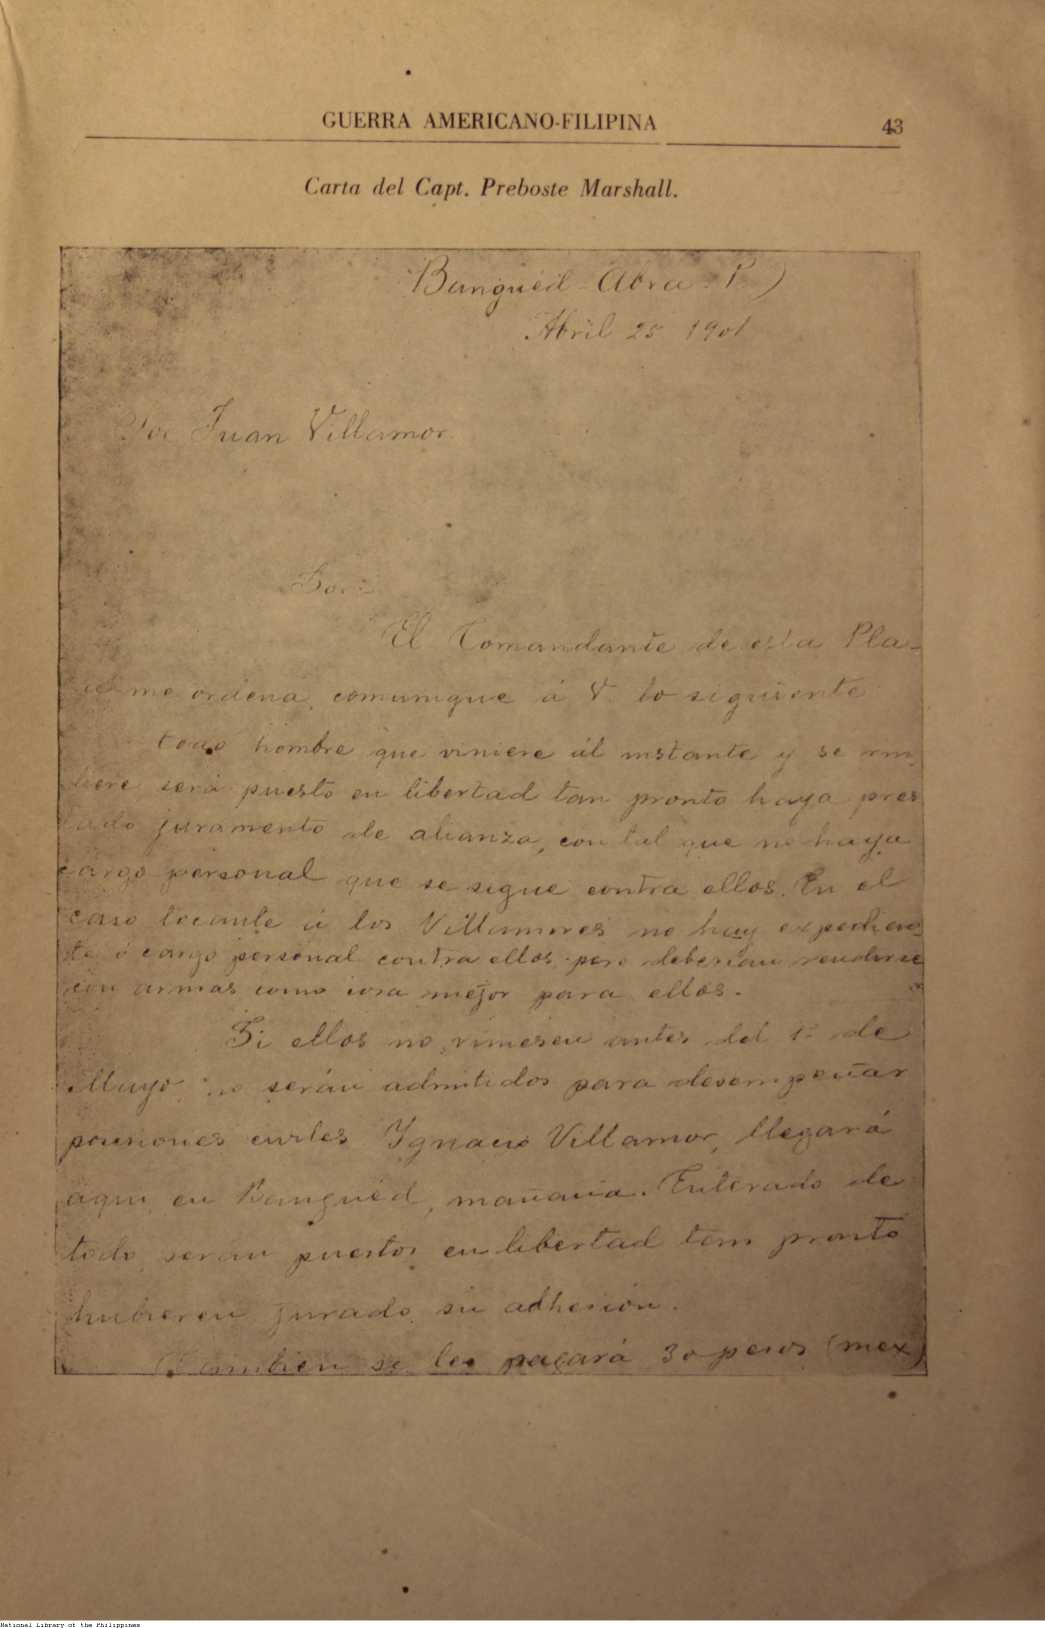 GUERRA AMERICANO-FILIPINA 43
Carta del Capt. Preboste Marshall.
Banguéd Abra P.)
Abril 25 1901
Juan Villamor
Sor:
El Comandante de esta Pla-
za me ordena, comunique á V. lo siguiente
todo hombre que viniere al instante y se rin
diere será puesto en libertad tan pronto haya pres
tado juramento de alianza, con tal que no haya
cargo personal que se sigue contra ellos. En el
caso tocante á los Villamores no hay expedien
te ó cargo personal contra ellos pero deberían rendirse
con armas como cosa mejor para ellos.
Si ellos no vinieseu antes del 1º de
Mayo, no serán admitidos para desempeñar
posiciones civiles Ygnacio Villamor, llegará
aqui en Banguéd, mañana. Enterado de
todo serán puestos en libertad tam pronto
hubieren jurado su adhesión.
(Tambien se les pagará 30 pesos (mex)
National Library of the Philippines